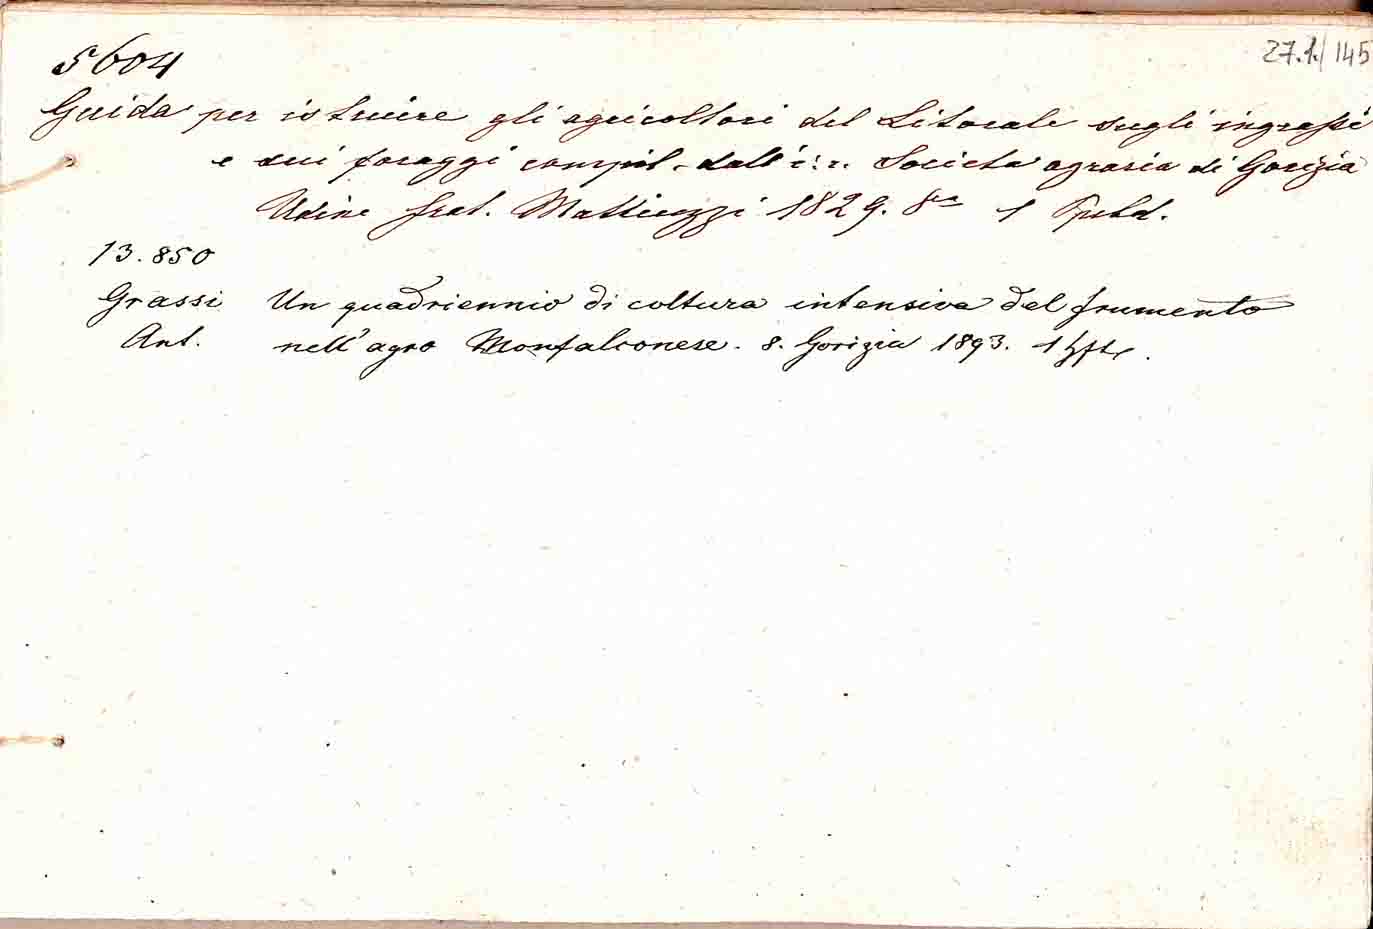 27.1./145
5604
Guida per istruire gli agricoltori del Litorale sugli ingrassi
e sui foraggi compil. dall' i: r. Societa agraria di Gorizia
Udine frat. Mattiuzzi 1829. 8° 1 Ppbd.
13.850
Grassi Un quadriennio di coltura intensiva del frumento
Ant. nell' agro Monfalconese. 8. Gorizia 1893. 1